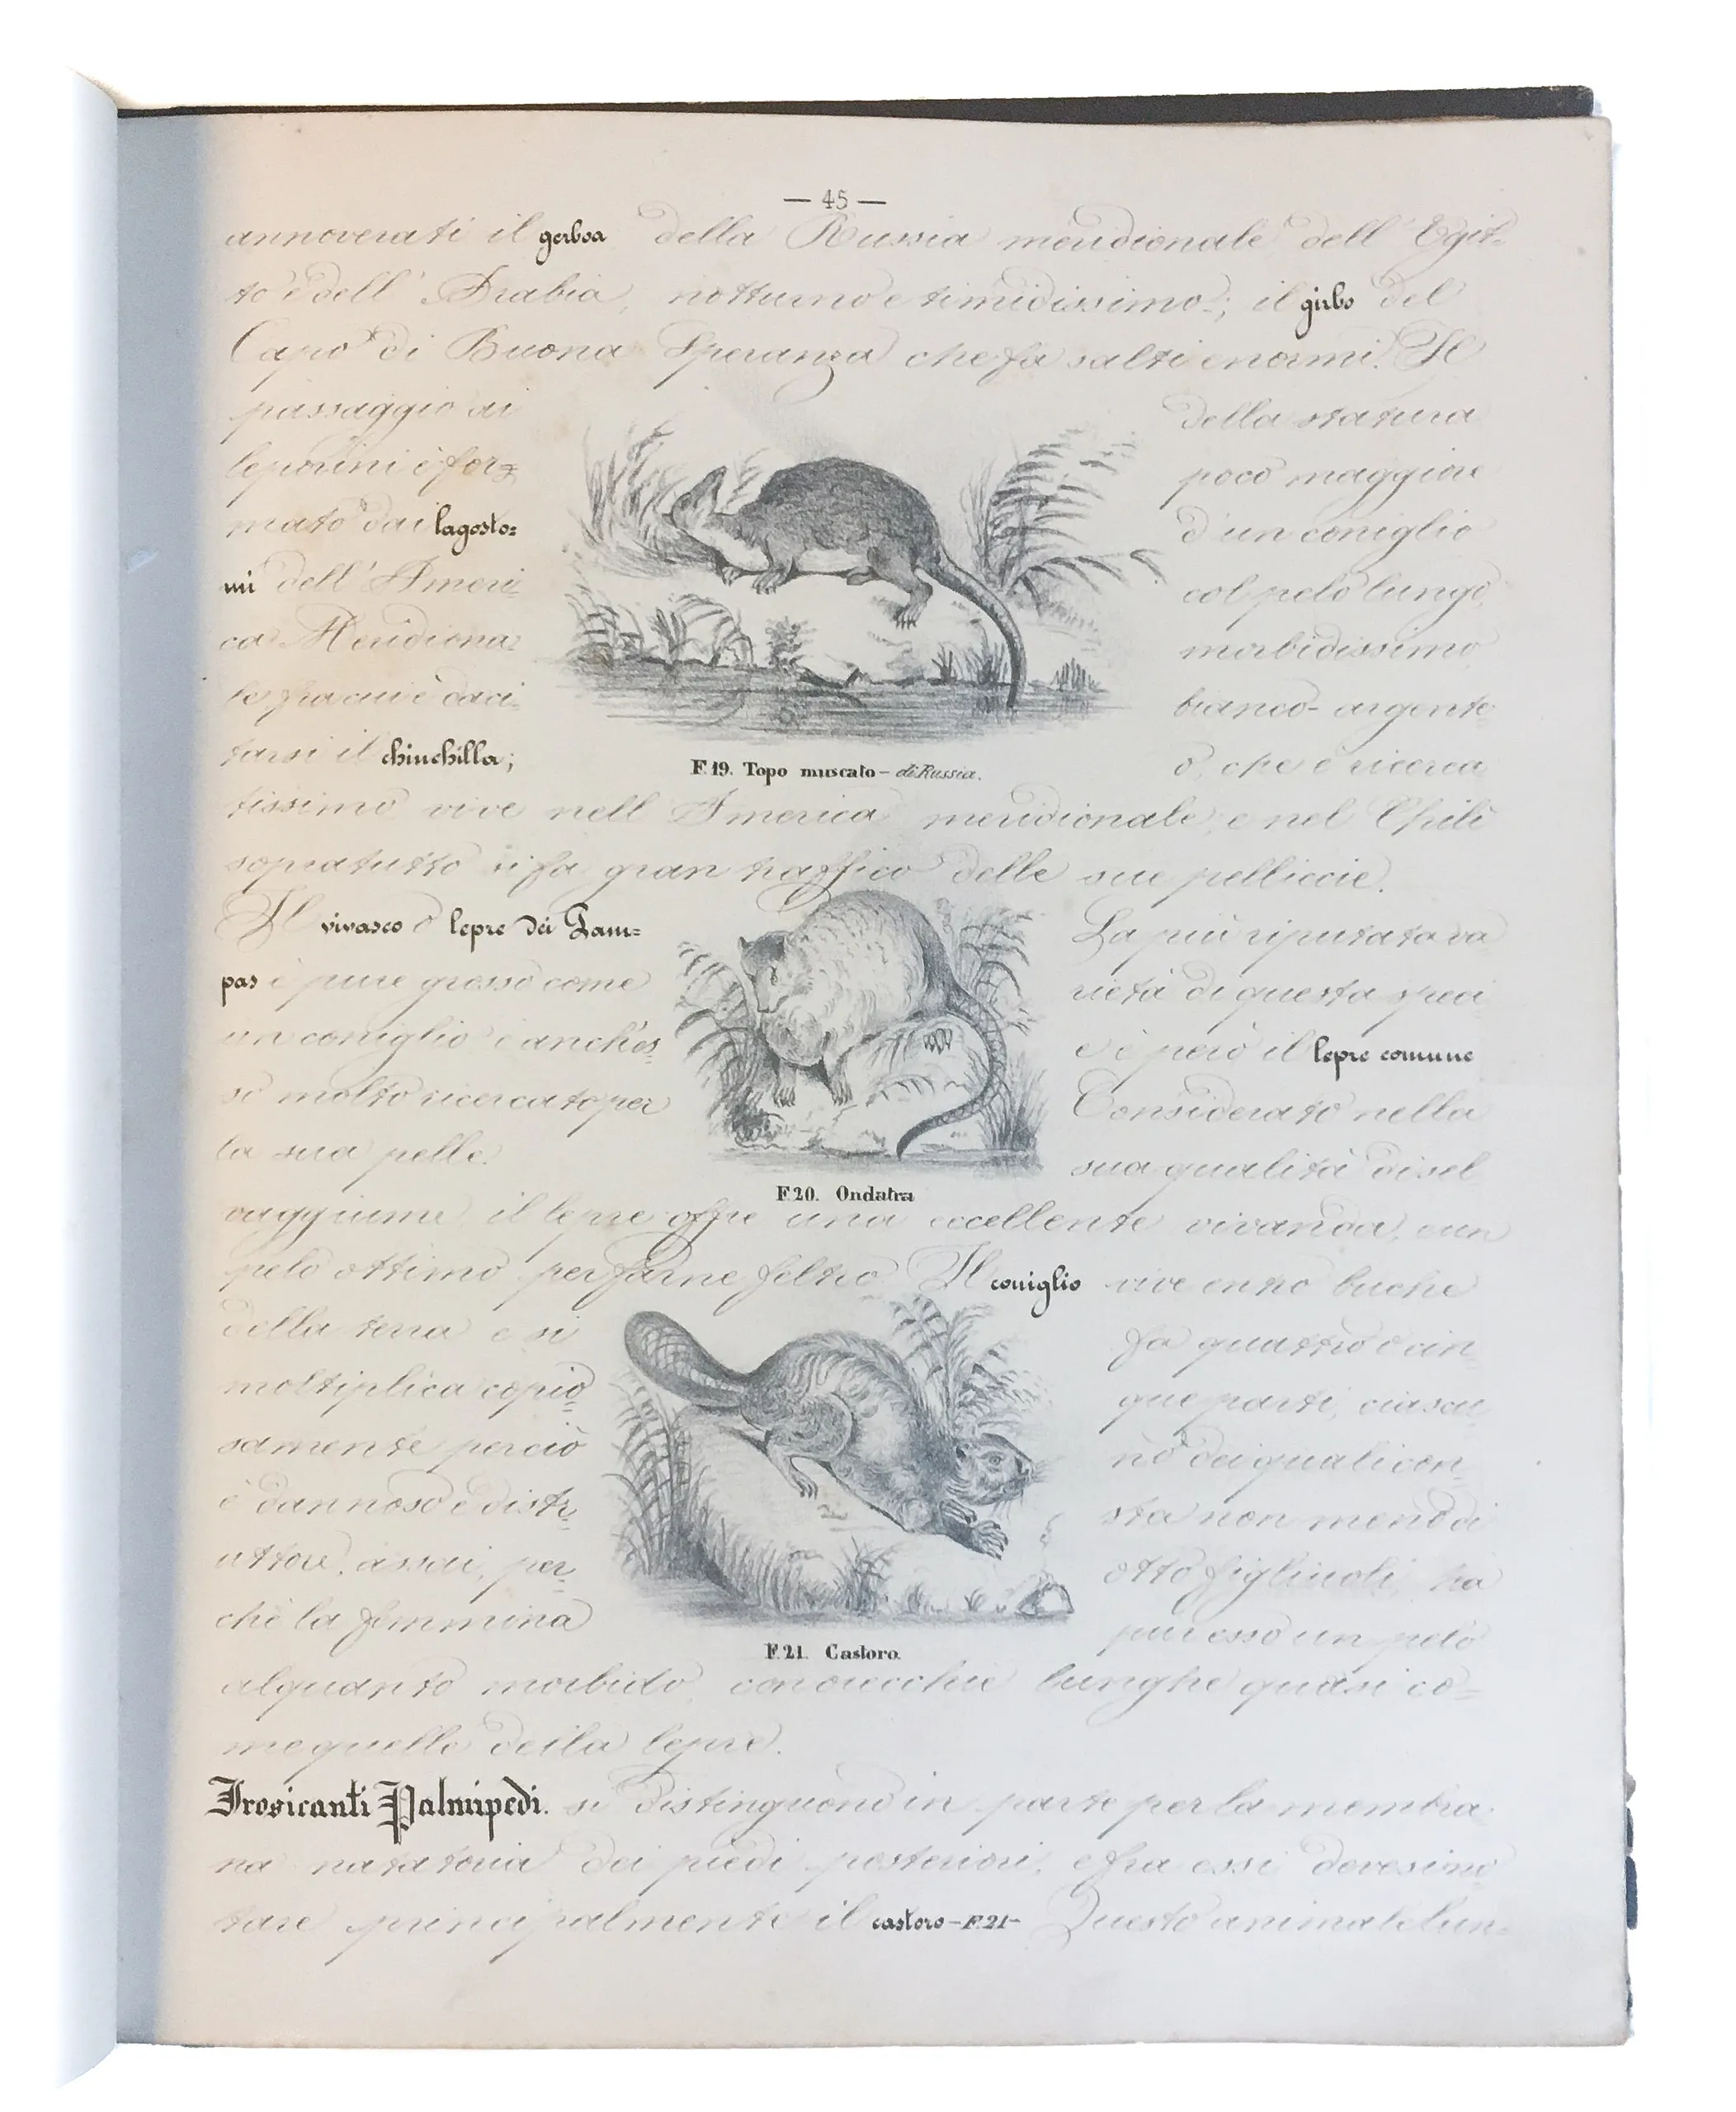 — 45 —
annoverati il gerboa della Russia meridionale dell' Egit=
to e dell' Arabia, notturno e timidissimo; il girbo del
Capo di Buona Speranza che fa salti enormi. Il
passaggio ai
leporini è for=
mato dai lagosto=
mi dell' Ameri=
ca Meridiona=
le fra cui è da ci=
tarsi il chinchilla;
della statura
poco maggiore
d'un coniglio
col pelo lungo,
morbidissimo
bianco-argenta
o, che è ricerca
F. 19. Topo muscato – di Russia.
tissimo vive nell America meridionale, e nel Chilì
sopratutto si fa gran traffico delle sue pelliccie.
Il vivasco o lepre dei Pam=
pas è pure grosso come
un coniglio è anch'es=
so molto ricercato per
la sua pelle.
La più riputata va
rietà di questa speci
e è però il lepre comune
Considerato nella
sua qualità di sel
F. 20. Ondatra
vaggiume, il lepre offre una eccellente vivanda, e un
pelo ottimo per farne feltro. Il coniglio vive entro buche
della terra e si
moltiplica copio=
samente perciò
è dannoso e distr=
uttore, assai, per=
chè la femmina
fa quattro o cin=
que parti, ciascu=
no dei quali con=
sta non meno di
otto figliuoli, ha
pur esso un pelo
F. 21. Castoro.
alquanto morbido, con orecchie lunghe quasi co=
me quelle della lepre.
Frosicanti Palmipedi. si distinguono in parte per la membra=
na natatoria dei piedi posteriori, e fra essi devesi no
tare principalmente il castoro – F. 21 – Questo animale lun=